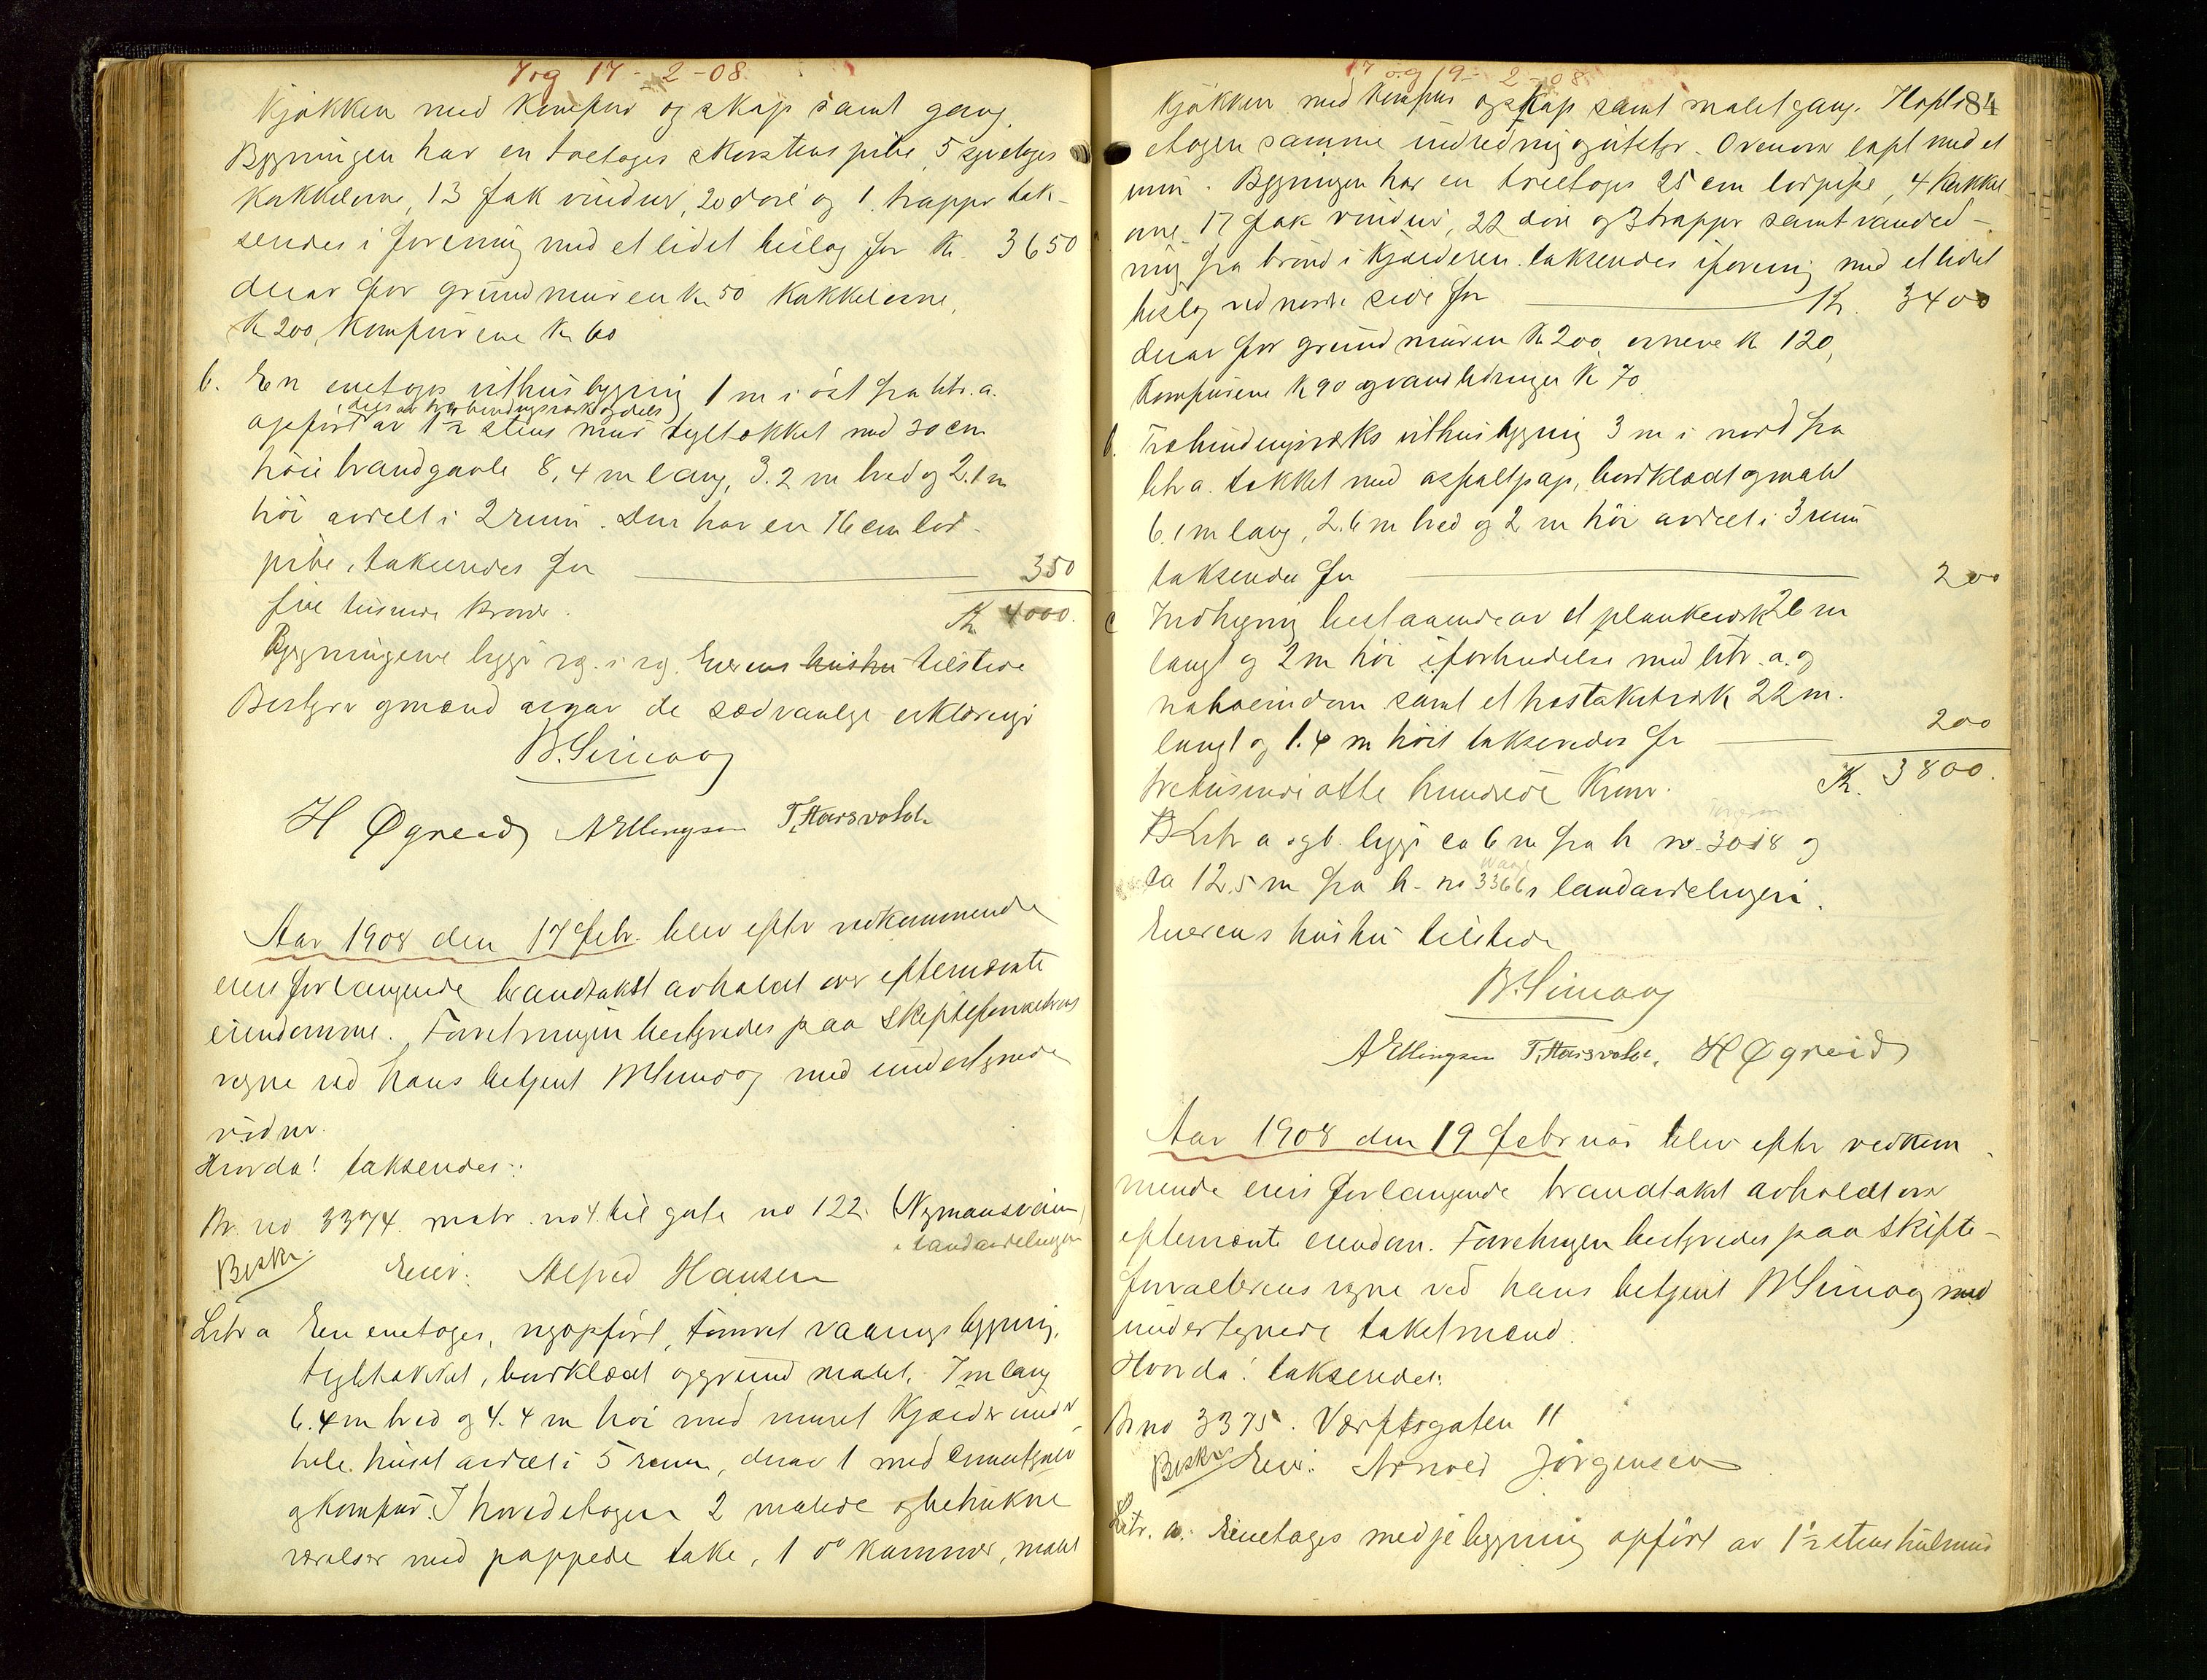 7 og 17-2-08
Kjøkken med komfur og skap samt gang.
Bygningen har en toetages skorstens pibe, 5 syvetages
kakkelovne, 13 fak vinduer, 20 döre og 1 trappe tak-
seredes i forening med et lidet bislag for Kr. 3650
derav for grundmuren Kr 50 Kakkelovne,
Kr 200, Komfurene Kr 60
b. En enetages uthusbygning 1 m i öst fra litr. a.
(dels av træbindingsværk og dels)
opført av 1½ stens mur tegltækket med 30 cm
höie brandgavle 8,4 m lang, 3.2 m bred og 2.1 m
höi avdelt i 2 rum. Den har en 16 cm lod-
pibe, takseredes for 350
fire tusinde kroner. Kr 4000.
Bygningene ligger rg. i rg. Eierens hustru tilstede
Bestyrer og mænd avgav de sædvanlige erklæringer
B. Simoog
H Øgreid A Ellingsen T. Harsvoldt.
Aar 1908 den 17 febr. blev efter vedkommende
eiers forlangende brandtakst avholdt over eftternævnte
eiendomme. Forretningen bestyredes paa Skifteforvalterens
vegne ved hans betjent B Simoog med undertegnede
vidner.
Hvorda! takseredes:
Br. no 3374. matr. no 4. til gate no 122. (Nymansveien)
i landavdelingen
Beskr. Eier: Alfred Hansen
Litr a En enetages, nyopført, tømret vaaningsbygning,
tegltækket, bordklædt og grundmalet. 7 m lang
6.4 m bred og 4.4 m höi med muret Kjælder under
hele huset avdelt i 5 rum, derav 1 med cementgulv
og komfur. I hovedetagen 2 malede og betrukne
værelser med pappede take, 1 do kammer, malet
17 og 19-2-08
Kjøkken med komfur og skap samt malet gang. I lofts 84
etagen samme indredning og utstyr. Ovenover loft med et
rum. Bygningen har en treetages 25 cm lodpipe, 4 kakkel
ovne 17 fak vinduer, 22 döre og 3 trapper samt vandled-
ning fra brönd i kjælderen takseredes i forening med et lidet
bislag ved nordre side for Kr. 3400
derav for grundmuren Kr 200, ovnene kr 120,
Komfurene Kr 90 og vandledningen Kr 70
b. Træbindingsværks uthusbygning 3 m i nord fra
litr a. tækket med asfaltpap, bordklædt og malet
6.1 m lang, 2.6 m bred og 2 m höi avdelt i 3 rum
takseredes for 200
c Indhegning bestaaende av et plankeværk 26 m
langt og 2 m höi i forbindelse med litr. a. og
naboeiendom samt et hastakitværk 22 m.
langt og 1.4 m höit takseredes for 200
tretusinde otte hundrede Kroner. Kr. 3800.
Litr a og b. ligger ca 6 m fra br no. 3018 og
ca 12.5 m fra br. no 3366 i landavdelingen.
Eierens hustru tilstede
B. Simoog
A Ellingsen T. Harsvoldt. H Øgreid
Aar 1908 den 19 februar blev efter vedkom
mende eiers forlangende brandtakst avholdt over
efternævnte eiendom. Forretningen bestyredes paa Skifte-
forvalterens vegne ved hans betjent B Simoog med
undertegnede takstmænd.
Hvorda! takseredes:
Br no 3375. Værftsgaten 11
Beskr. Eier: Arnold Jörgensen
Litr. a. Enetages medje bygning opført av 1½ stens hulmur